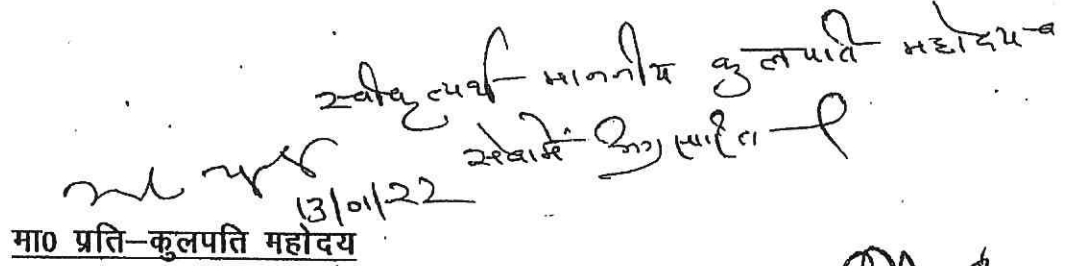 स्वीकृत्यर्थ माननीय कुलपति महोदय
सेवामें
13/01/22
मा0 प्रति–कुलपति महोदय